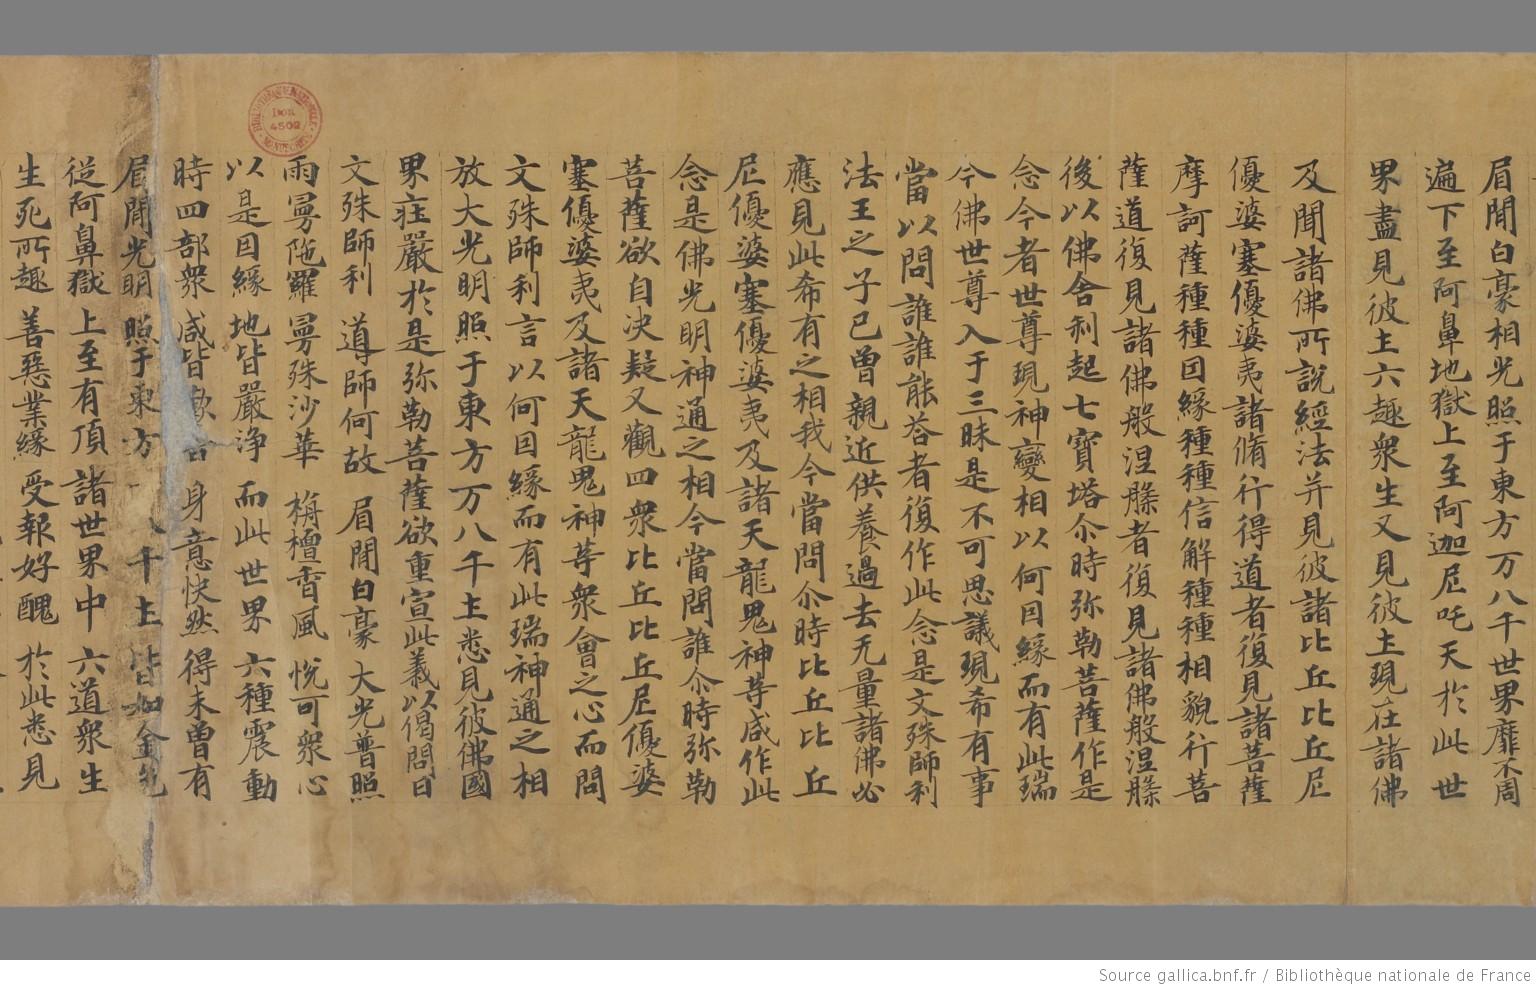 眉間白豪相光照于東方万八千世界靡不周
遍下至阿鼻地獄上至阿迦尼吒天於此世
界盡見彼土六趣衆生又見彼土現在諸佛
及聞諸佛所說經法并見彼諸比丘比丘尼
優婆塞優婆夷諸脩行得道者復見諸菩薩
摩訶薩種種因緣種種信解種種相貌行菩
薩道復見諸佛般涅槃者復見諸佛般涅槃
後以佛舍利起七寶塔尒時弥勒菩薩作是
念今者世尊現神變相以何因緣而有此瑞
今佛世尊入于三昧是不可思議現希有事
當以問誰誰能荅者復作此念是文殊師利
法王之子已曾親近供養過去无量諸佛必
應見此希有之相我今當問尒時比丘比丘
尼優婆塞優婆夷及諸天龍鬼神等咸作此
念是佛光明神通之相今當問誰尒時弥勒
菩薩欲自決疑又觀四衆比丘比丘尼優婆
塞優婆夷及諸天龍鬼神等衆會之心而問
文殊師利言以何因緣而有此瑞神通之相
放大光明照于東方万八千土悉見彼佛國
界莊嚴於是弥勒菩薩欲重宣此義以偈問曰
文殊師利 導師何故 眉間白豪 大光普照
雨曼陁羅 曼殊沙華 栴檀香風 悅可衆心
以是因緣 地皆嚴淨 而此世界 六種震動
時四部衆 咸皆歡喜 身意快然 得未曾有
眉間光明 照于東方 八千土 皆如金色
從阿鼻獄 上至有頂 諸世界中 六道衆生
生死所趣 善惡業緣 受報好醜 於此悉見
BIBLIOTHÈQUE NATIONALE
Don
4502
MANUSCRITS
Source gallica.bnf.fr / Bibliothèque nationale de France